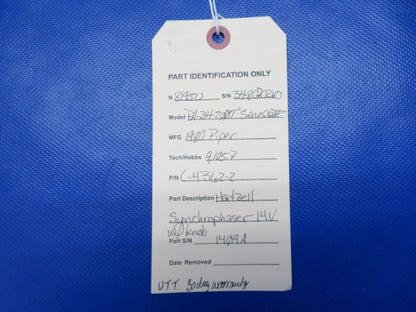 PART IDENTIFICATION ONLY
N 8195U S/N
Model PA-34-200T Seneca II
MFG 1980 Piper
Tach/Hobbs 9,105.7
P/N C-4362-2
Part Description Hartzell
Synchrophaser 14V
w/ Knob
Part S/N 1409A
Date Removed
UTT 30 day warranty